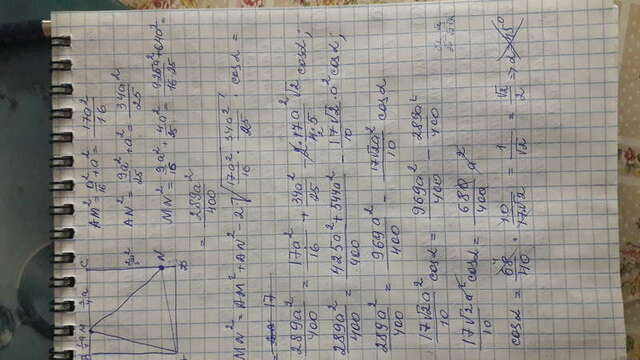 B M C
N
D
AM² = a²/16 + a² = 17a²/16
AN² = 9a²/25 + a² = 34a²/25
MN² = 9a²/16 + 4a²/25 =
= 289a²/400
MN² = AM² + AN² - 2√(17a²/16 · 34a²/25) · cosα =
289a²/400 = 17a²/16 + 34a²/25 - 2·17a²√2/4·5 cosα;
289a²/400 = 425a² + 544a²/400 - 17√2 a²/10 cosα;
289a²/400 = 969a²/400 - 17√2a²/10 cosα
17√2a²/10 cosα = 969a²/400 - 289a²/400
17√2a²/10 cosα = 680/400 a²
cosα = 68/40 · 10/17√2 = 1/√2 = √2/2 ⇒ α=45°